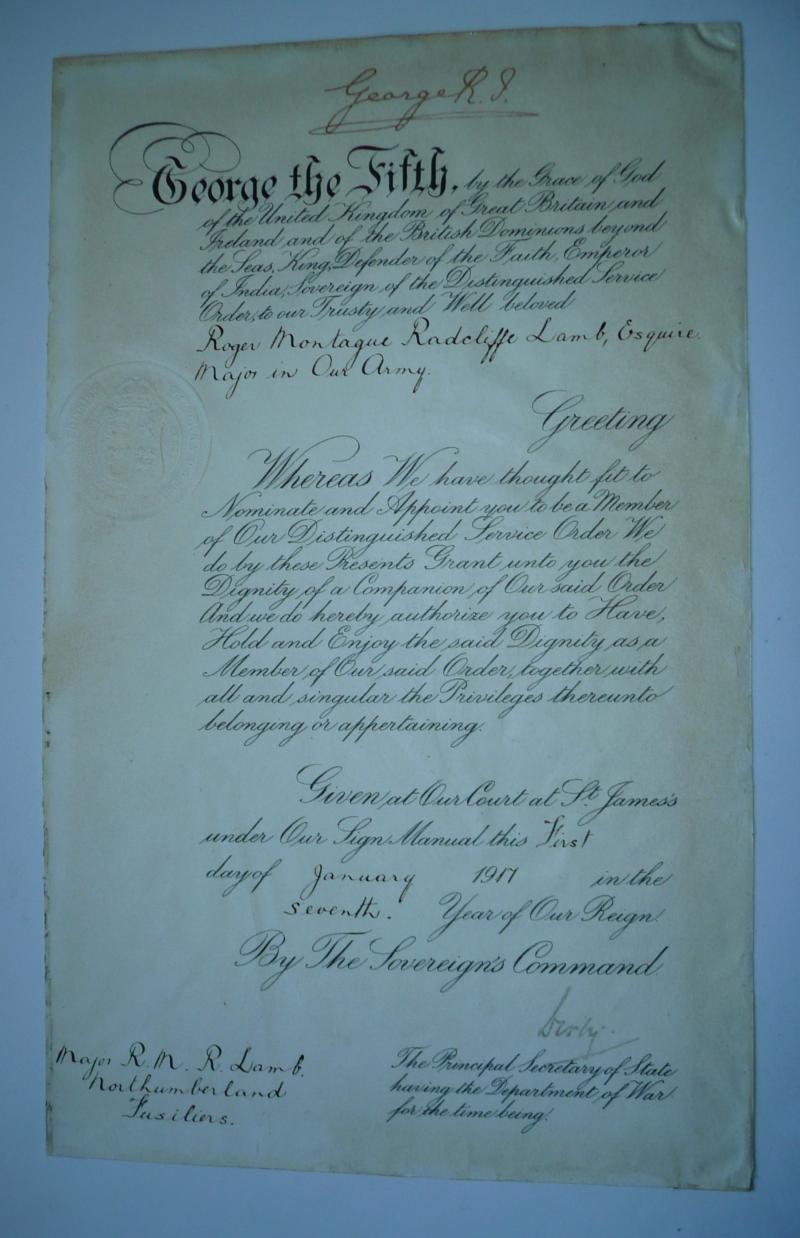 George R. I.
George the Fifth, by the Grace of God
of the United Kingdom of Great Britain and
Ireland and of the British Dominions beyond
the Seas, King, Defender of the Faith, Emperor
of India, Sovereign of the Distinguished Service
Order, to our Trusty and Well beloved
Roger Montague Radcliffe Lamb, Esquire.
Major in Our Army.
Greeting
Whereas We have thought fit to
Nominate and Appoint you to be a Member
of Our Distinguished Service Order We
do by these Presents Grant unto you the
Dignity of a Companion of Our said Order
And we do hereby authorize you to Have,
Hold and Enjoy the said Dignity as a
Member of Our said Order, together with
all and singular the Privileges thereunto
belonging or appertaining.
Given at Our Court at St. James's
under Our Sign Manual this First
day of January 1917 in the
seventh. Year of Our Reign.
By The Sovereign's Command.
Derby.
Major R. M. R. Lamb.
Northumberland
Fusiliers.
The Principal Secretary of State
having the Department of War
for the time being.